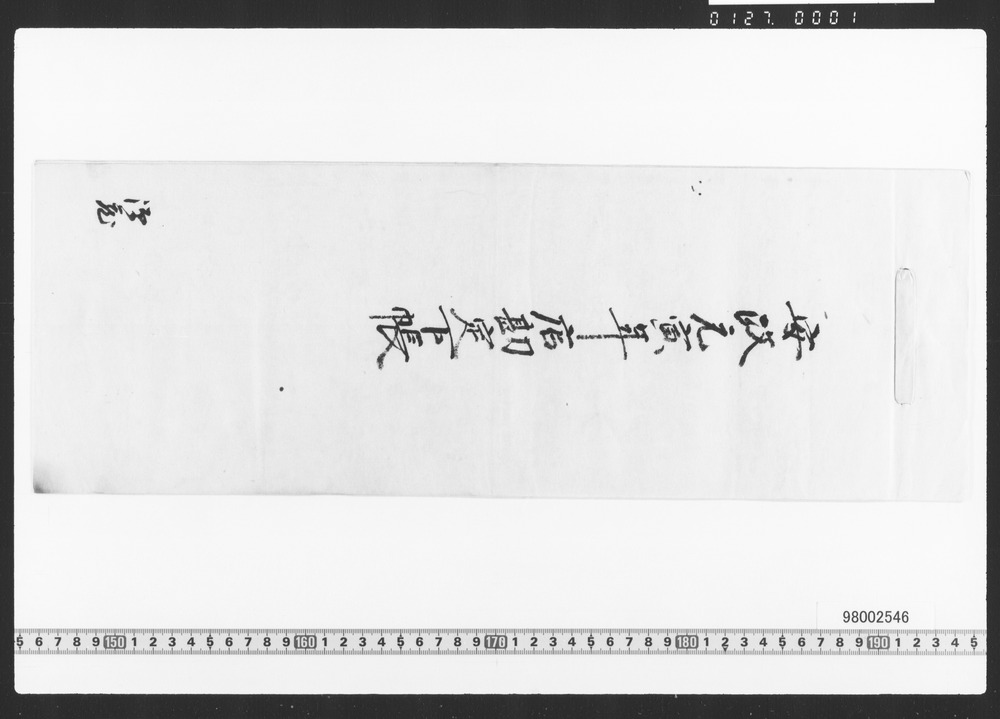 0127. 0001
安政元寅年店勘定下帳
98002546
5 6 7 8 9 150 1 2 3 4 5 6 7 8 9 160 1 2 3 4 5 6 7 8 9 170 1 2 3 4 5 6 7 8 9 180 1 2 3 4 5 6 7 8 9 190 1 2 3 4 5